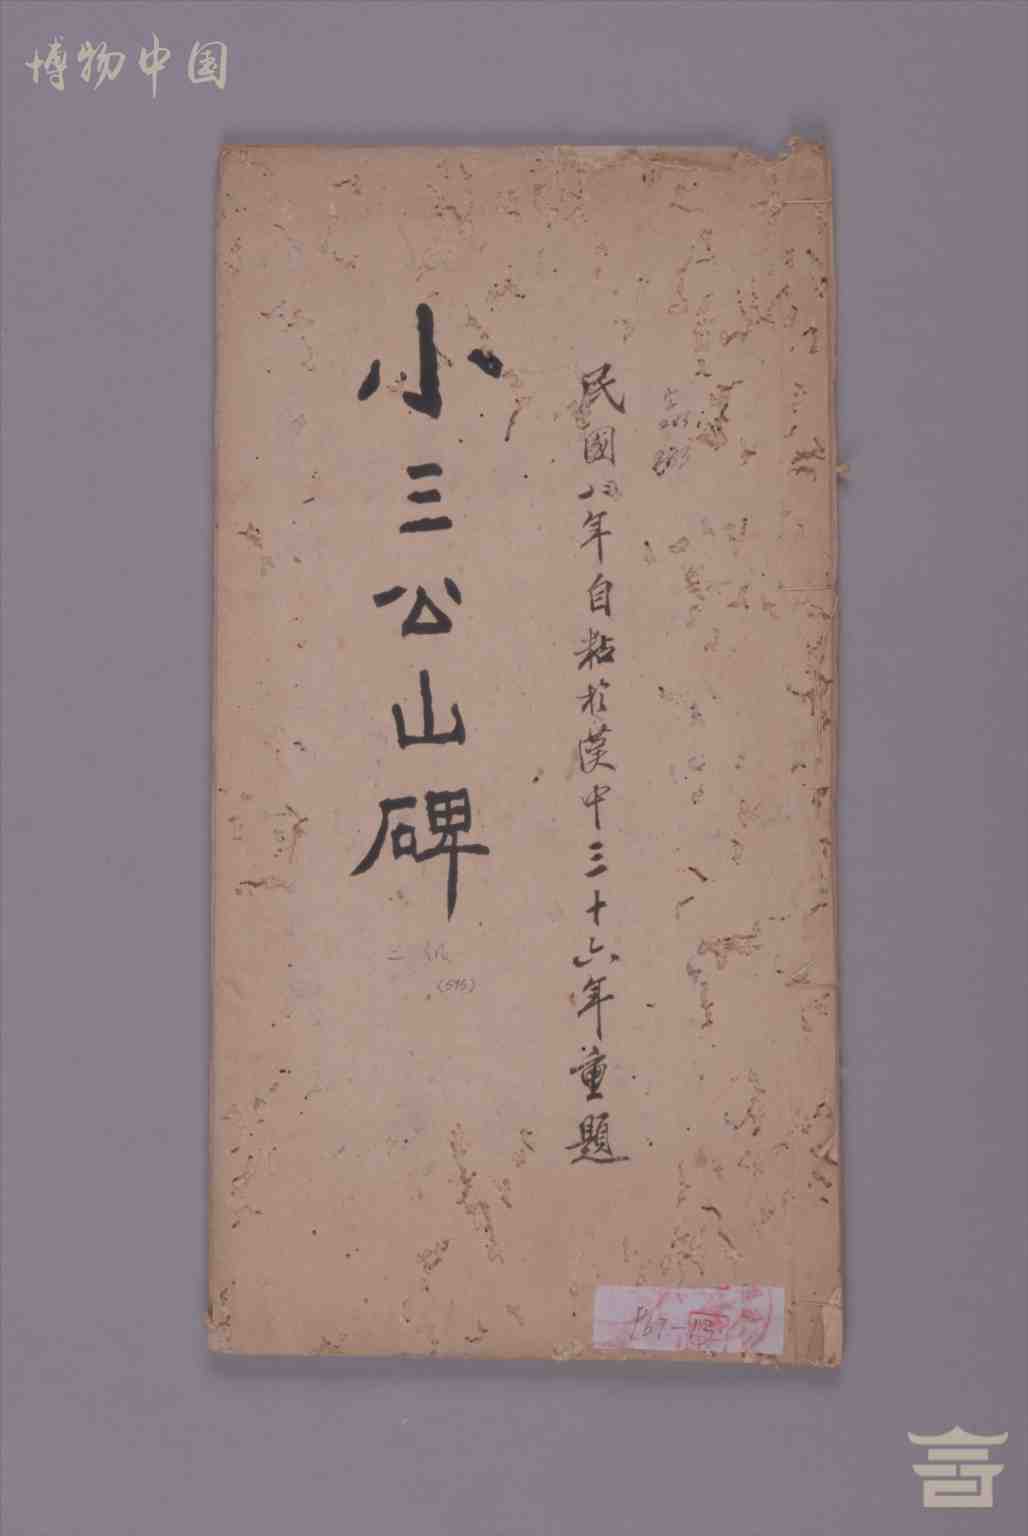 博物中国
民國八年自粘於漢中三十六年重題
小三公山碑
(595)